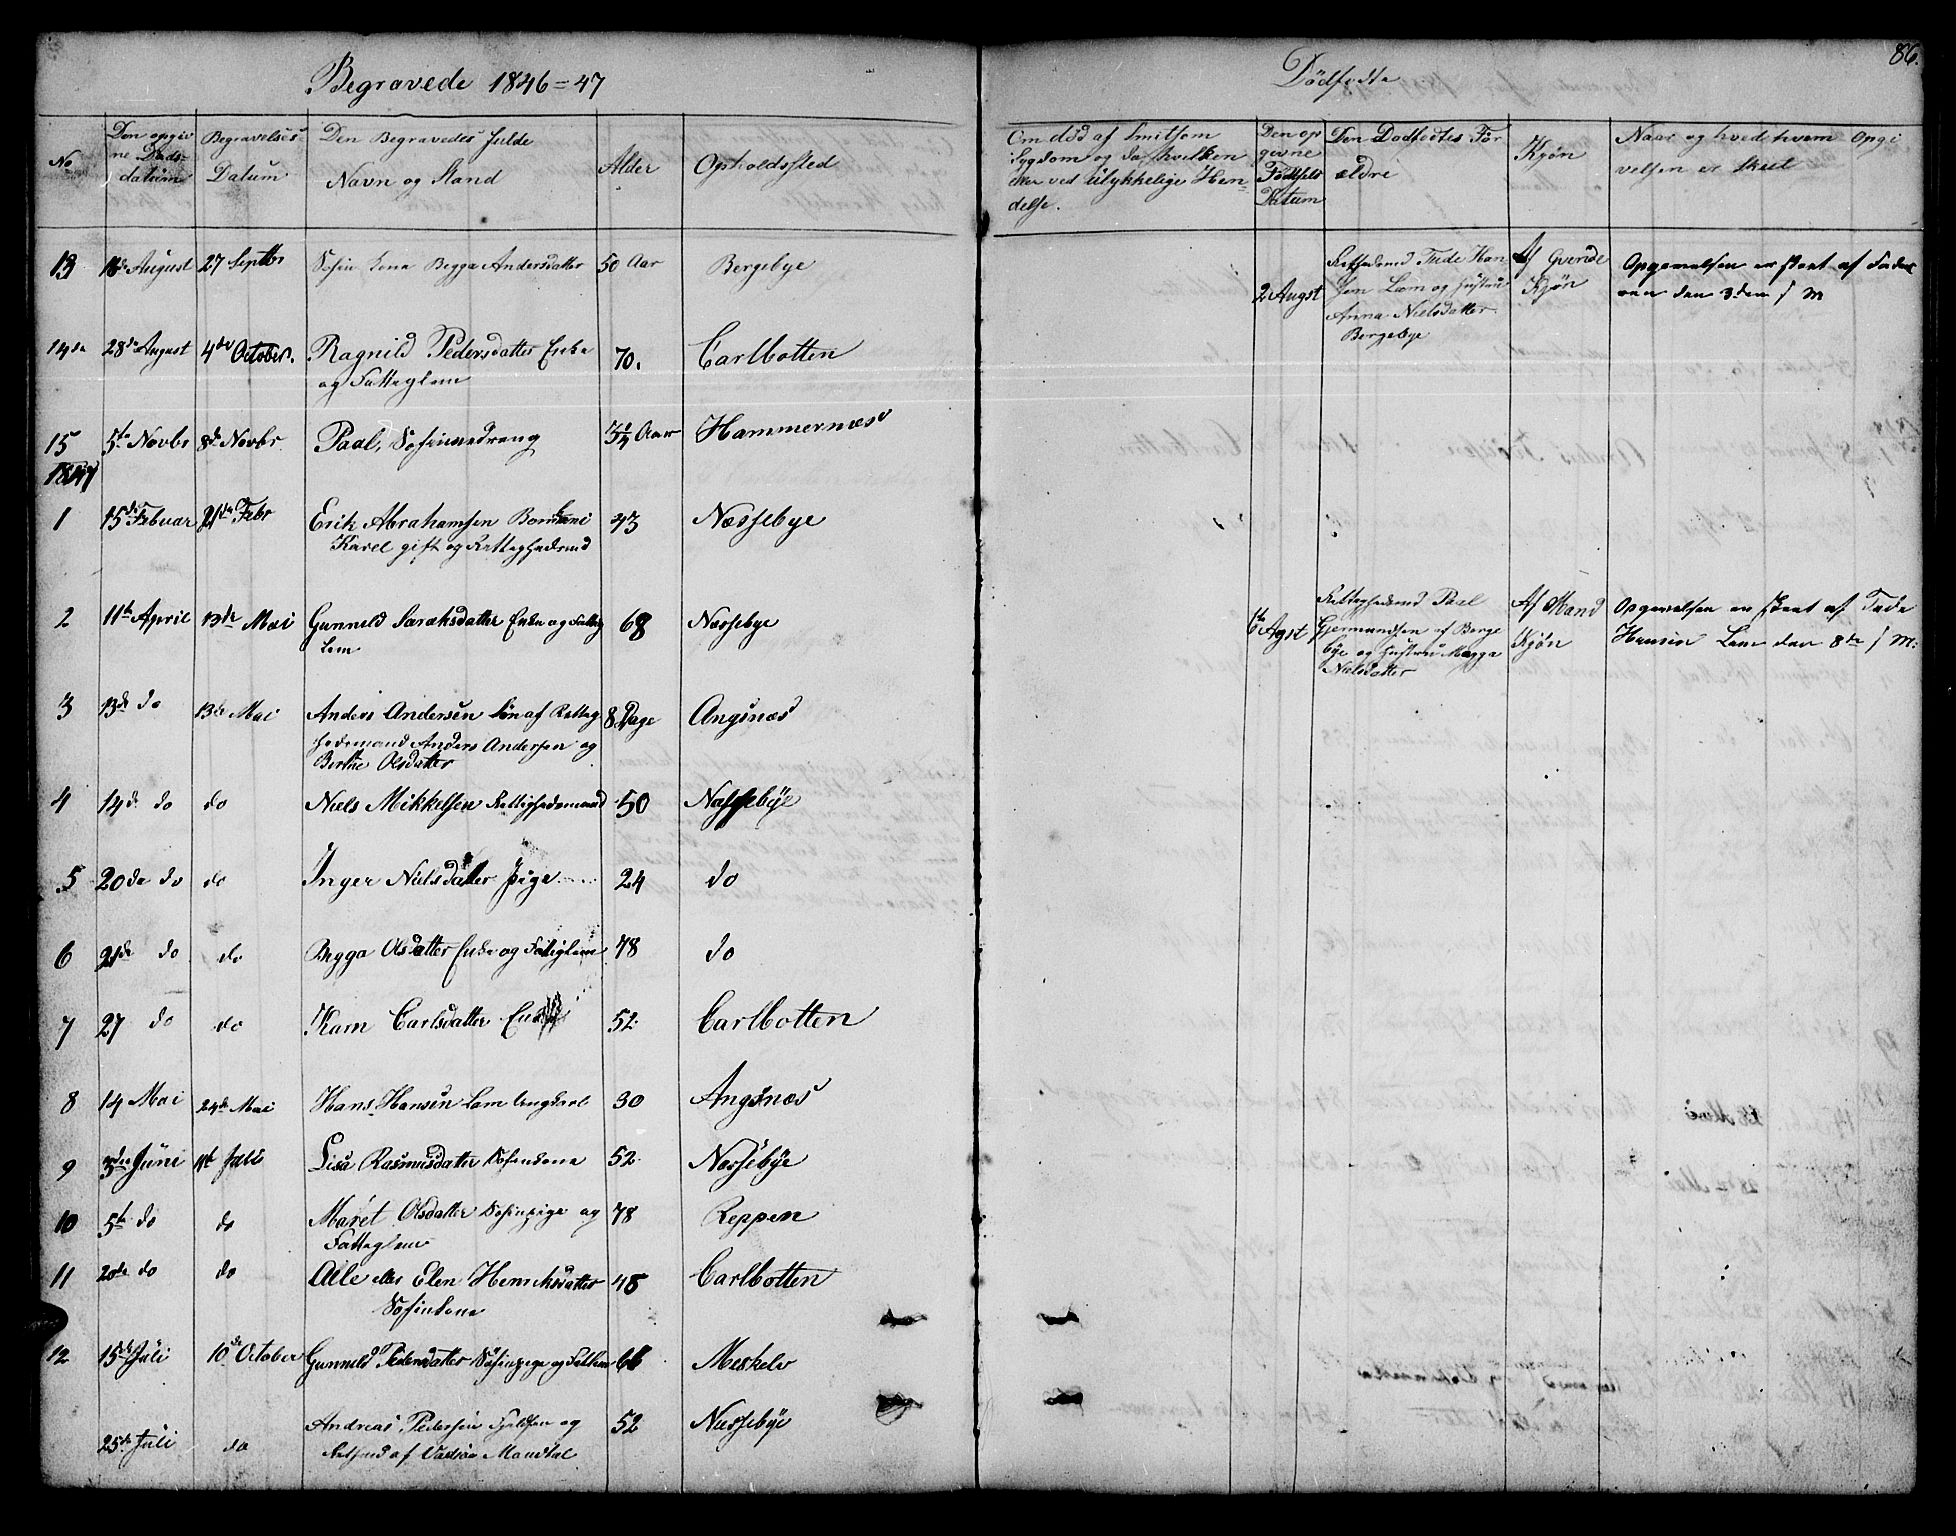 Begravede 1846=47
No
Den opgiv
ne Døds-
datum
Begravelses
Datum
Den Begravedes fulde
Navn og Stand
Alder
Opholdssted
13 August 27 Septbr Begga Andersdatter 50 Aar Bergebye
14de 28de August 4de October. Ragnild Pedersdatter Enke 70. Carlbotten
og Fatteglem
15 5te Novbr 8de Novbr Paal, Søfinnedreng 3 1/4 Aar Hammernæs
1847
1 15de Febuar 21de Febr Erik Abrahamsen 43 Næssebye
Karel gift og
2 11te April 13de Mai Gunneld Saraksdatter Enke og Fattig 68 Næssebye
Lem
3 13de do 13de Mai Anders Andersen Søn af Retteg 8 Dage Angsnæs
hedsmand Anders Andersen og
Berthe Olsdatter
4 14de do do Niels Mikkelsen Rettighedsmand 50 Næssebye
5 20de do do Inger Nielsdatter Pige 24 do
6 21de do do Begga Olsdatter Enke og Fatiglem 78 do
7 27 do do Karn Carlsdatter 52 Carlbotten
8 14 Mai 24de Mai Hans Hansen Lam Ungkarl 30 Angsnæs
9 Juni Juli Lisa Rasmusdatter Søfinkone 52 Næssebye
10 5te do do Maret Olsdatter Søfinpige og 78 Reppen
Fatteglem
11 20de do do Aile eller Elen Henriksdatter 48 Carlbotten
Søfinkone
12 15de Juli 10de October Gunneld Pedersdatter Søfinpige og 66 Meskelv
25de Juli do Andreas Pedersen og 52 Næssebye
af Mandtal
86.
Dødfødte
Om død af Smitsom
Sygdom og da hvilken
eller ved ulykkelige Hen-
delse.
Den op
givne
Fødsels
Datum
Den Dødfødtes For
ældre
Kjøn
Naar og hved hvem Opgi
velsen er skeet
2 Augst
Fude Han
sen Lam og Hustru
Anna Nielsdatter
Bergebye
Af Qvinde
Kjøn
Opgivelsen er skeet af Fade
ren den 3den s M
6te Agst
Rettighedsmd Paal
Gjermundsen af Berge
bye og Hustru Magga
Nielsdatter
Af Mand
Kjøn
Opgivelsen er skeet af Fude
Hansen Lam den 8de s M: